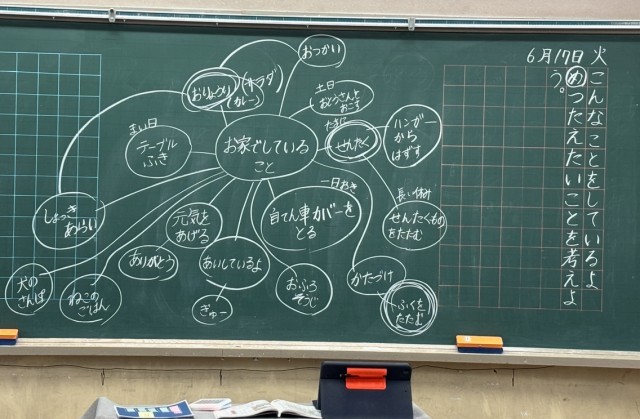 6月17日 火
こんなことをしているよ
めつたえたいことを考えよ
う。
お家でしている
こと
おつかい
おりょうり
(サラダ)
(カレー)
土日
おとうさんを
おこす
たまに
せんたく
ハンガー
から
はずす
長い休み
せんたくもの
をたたむ
まい日
テーブル
ふき
しょっき
あらい
犬の
さんぽ
ねこの
ごはん
ありがとう
元気を
あげる
あいしているよ
ぎゅー
おふろ
そうじ
一日おき
自てん車カバーを
とる
かたづけ
ふくを
たたむ